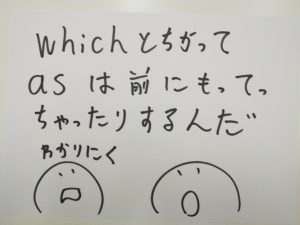 whichとちがって
asは前にもってっ
ちゃったりするんだ
わかりにく